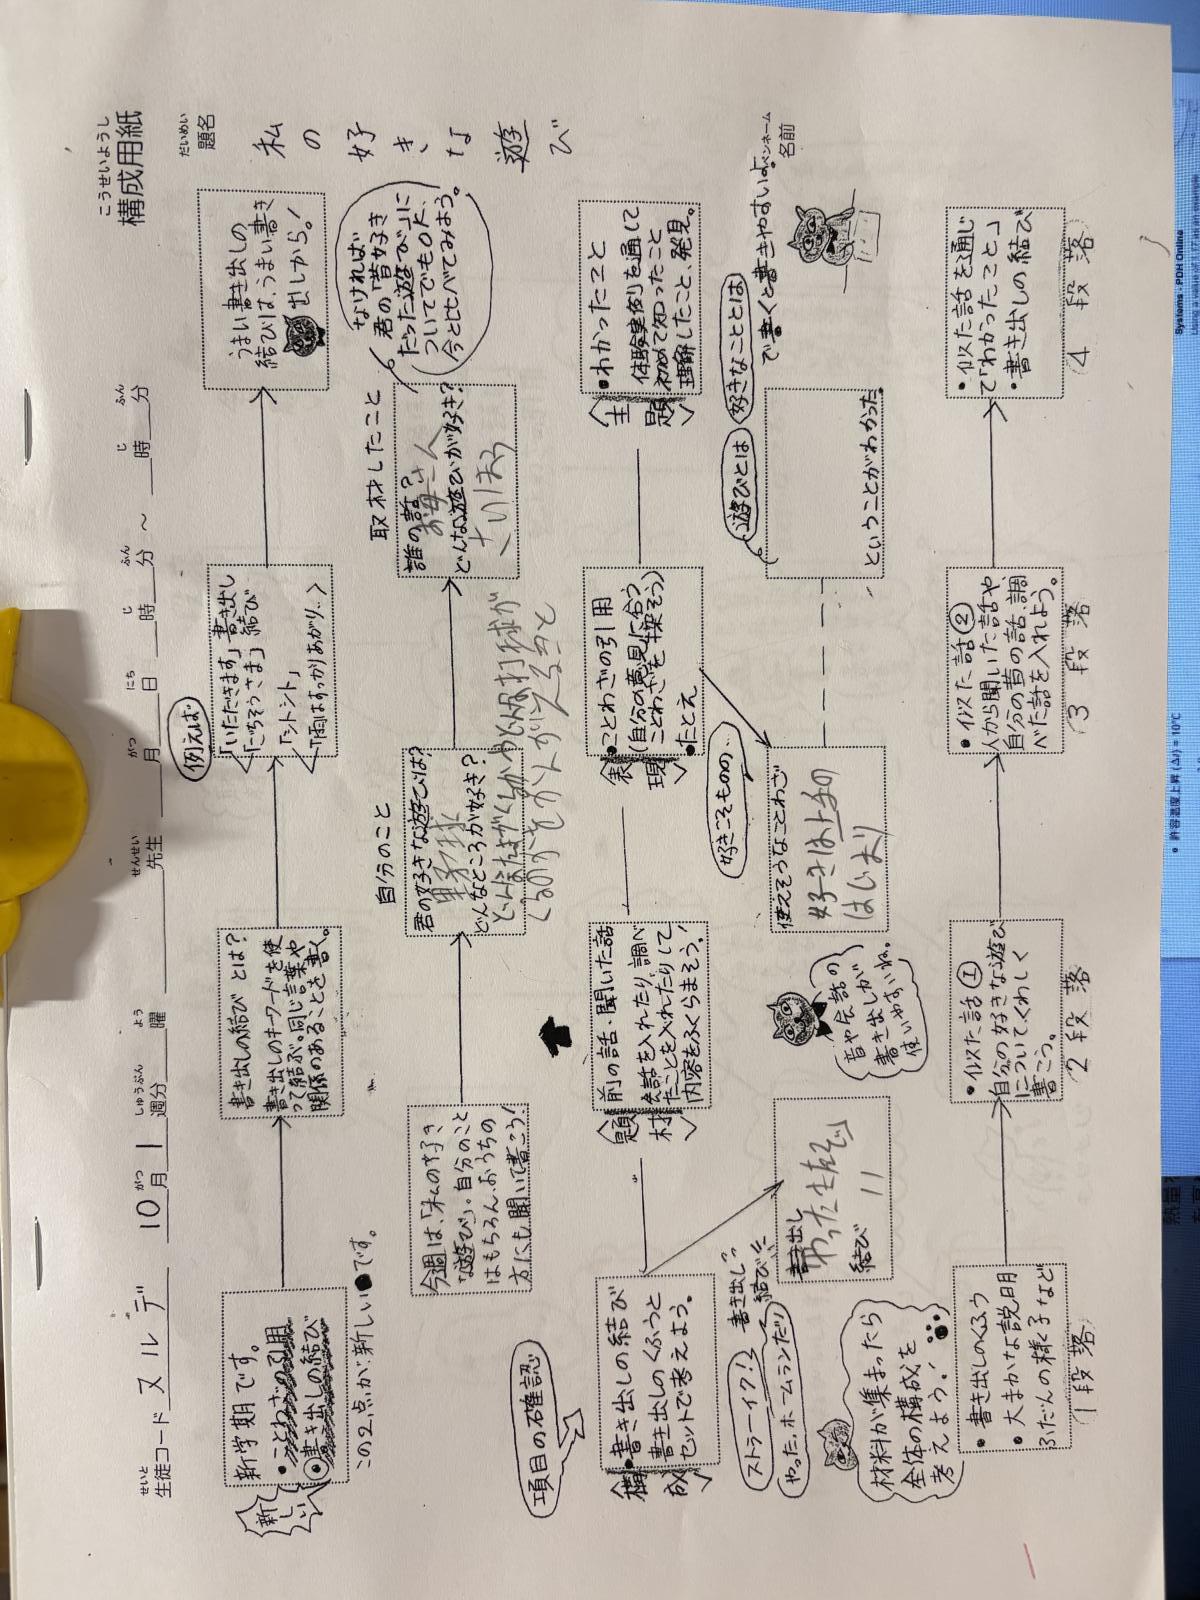 こうせいようし
構成用紙
せいと
生徒コード ヌ ル デ 10 がつ月 1 しゅうぶん週分 よう曜 せんせい先生 がつ月 にち日 じ時 ふん分 ～ じ時 ふん分
だいめい
題名
私の好きな遊び
新しい
新学期です。
・ことわざの引用
・書き出しの結び
この2点が新しい●です。
書き出しの結びとは？
書き出しのキーワードを使
って結ぶ。同じ言葉や
関係のあることを書く。
例えば
「いただきます」書き出し
「ごちそうさま」結び
「シトシト」
「雨はすっかりあがり…」
うまい書き出しの
結びは、うまい書き
出しから。！
今週は、「私の好き
な遊び」。自分のこと
はもちろん、おうちの
方にも聞いて書こう！
自分のこと
君の好きな遊びは？
野球
どんなところが好き？
取材したこと
誰の話？
お母さん
どんな遊びが好き？
さいほう
なければ
君の「昔好き
だった遊び」に
ついてでもOK、
今と比べてみよう。
項目の確認
〈構成〉
・書き出しの結び
書き出しのくふうと
セットで考えよう。
〈題材〉
前の話・聞いた話
会話を入れたり、調べ
たことを入れたりして
内容をふくらまそう！
〈表現〉
・ことわざの引用
（自分の意見に合う、
ことわざを探そう）
・たとえ
〈主題〉
・わかったこと
体験実例を通して
初めて知ったこと
理解したこと、発見。
ストラーイク！
書き出し
やった。ホームランだ!!
結び
書き出し
結び
〃
音や会話の
書き出しが
使いやすいね。
好きこそものの…
使えそうなことわざ
好きは上手の
はじまり
遊びとは
好きなこととは
で書くと書きやすいよ
ということがわかった。
ペンネーム
名前
材料が集まったら
全体の構成を
考えよう！
・書き出しのくふう
・大まかな説明
ふだんの様子など
1段落
・似た話①
自分の好きな遊び
についてくわしく
書こう。
2段落
・似た話②
人から聞いた話や
自分の昔の話、調
べた話を入れよう。
3段落
・似た話を通じ
て「わかったこと」
・書き出しの結び
4段落
Systems - PDH Online
許容温度上昇 (Δt) = 10°C